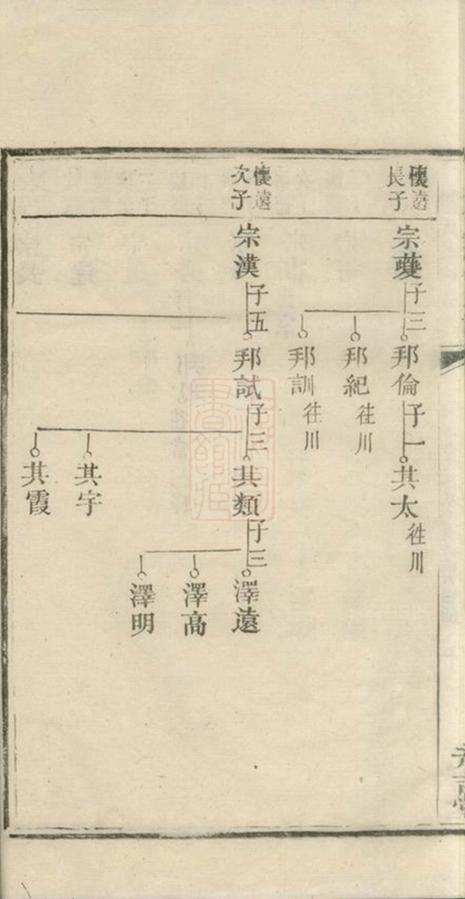 懷遠長子
宗蘷子三
邦倫子一
共太徃川
邦紀徃川
邦訓徃川
懷遠次子
宗漢子五
邦試子三
共類子三
澤遠
澤高
澤明
共宇
共霞